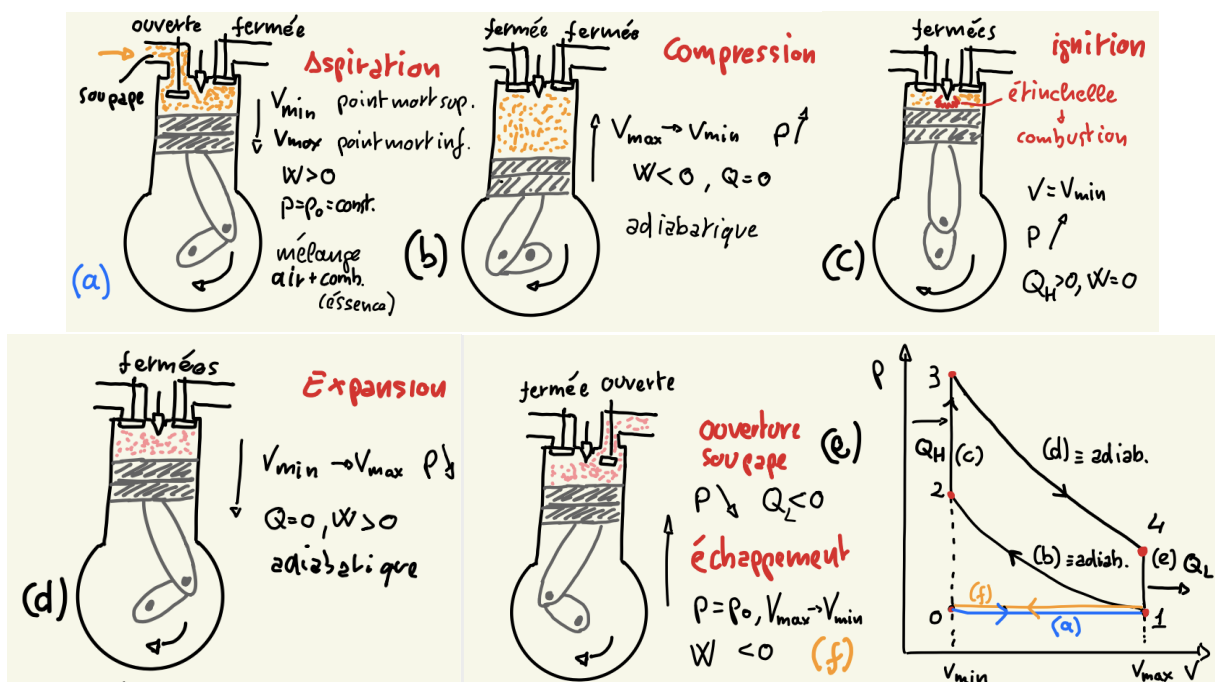 ouverte fermée
soupape
Aspiration
Vmin point mort sup.
Vmax point mort inf.
W>0
P=P₀=const.
mélange
air+comb.
(éssence)
(a)
fermée fermée
Compression
Vmax→Vmin P↗
W<0, Q=0
adiabatique
(b)
fermées
ignition
étinchelle
↓
combustion
V=Vmin
P↗
Q_H>0, W=0
(c)
fermées
Expansion
Vmin→Vmax P↘
Q=0, W>0
adiabatique
(d)
fermée ouverte
ouverture
soupape
(e)
P↘ Q_L<0
échappement
P=P₀, Vmax→Vmin
W<0 (f)
P
3
Q_H (c)
(d)≡adiab.
2
4
(b)≡adiab.
(e) Q_L
(f)
0
(a)
1
Vmin
Vmax V